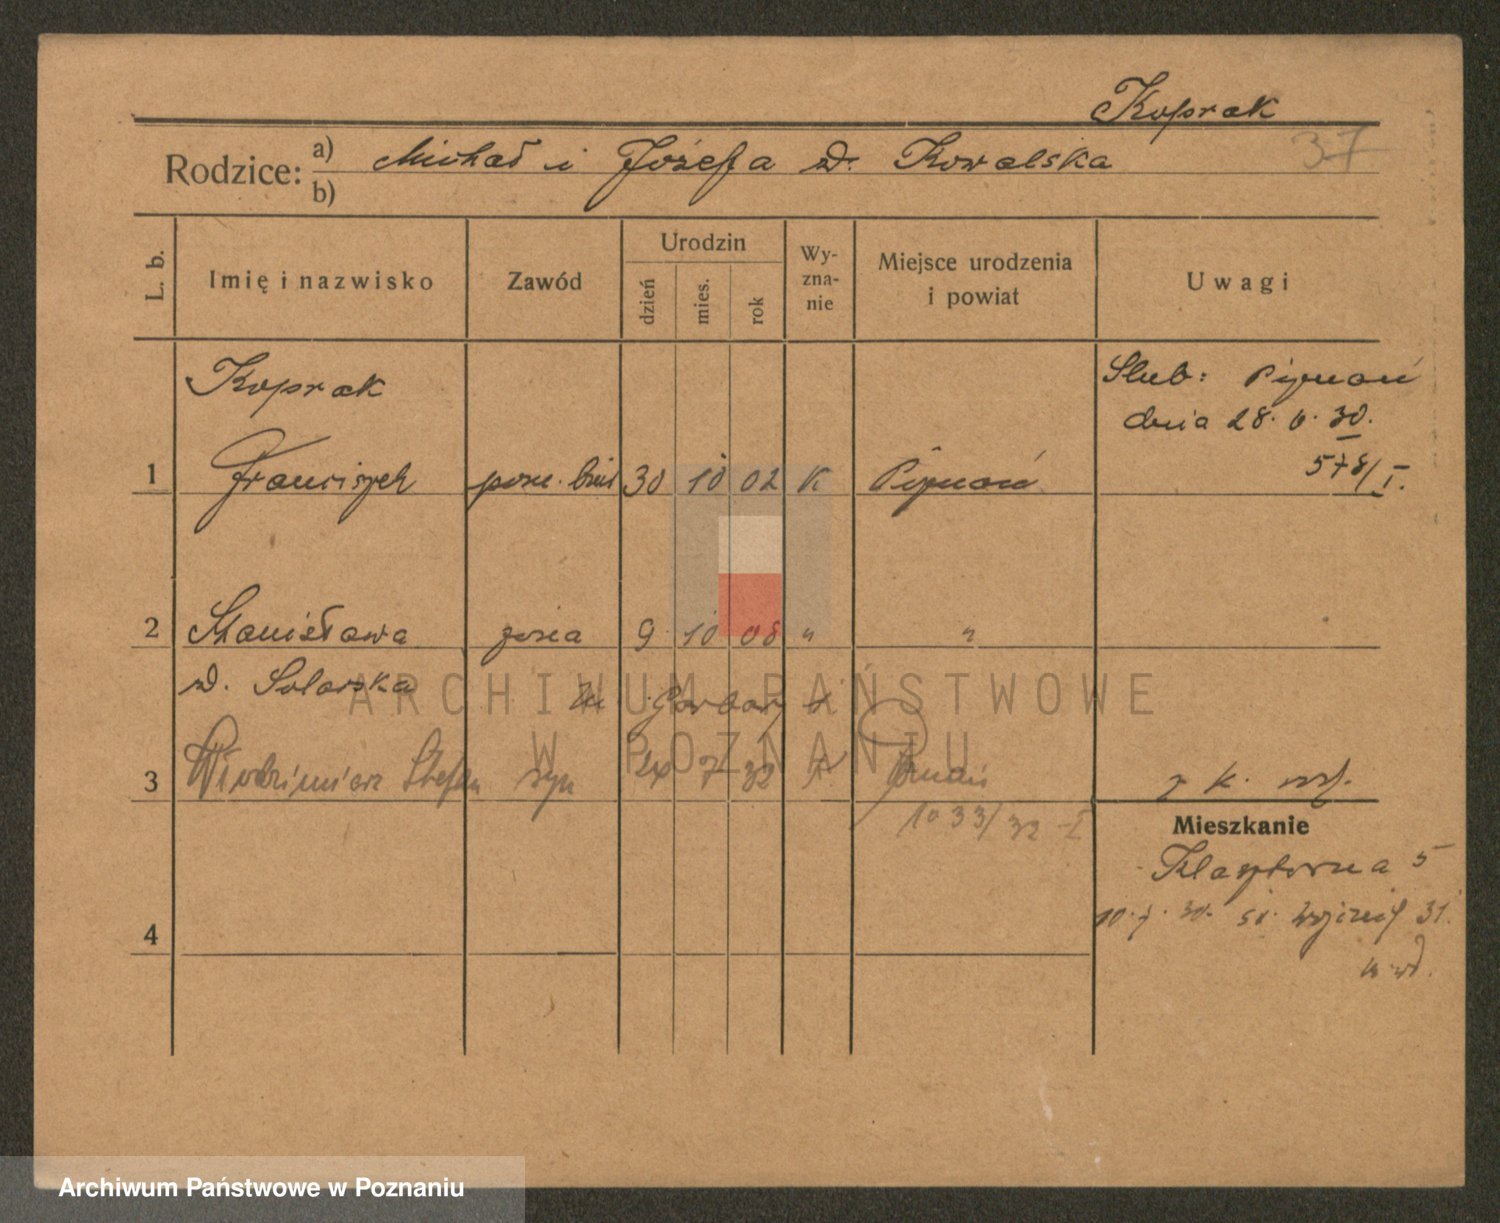 Koprak
37
Rodzice: a) Michał i Józefa d. Kowalska
b)
L. b.
Imię i nazwisko
Zawód
Urodzin
dzień
mies.
rok
Wy-
zna-
nie
Miejsce urodzenia
i powiat
Uwagi
Koprak
Ślub: Poznań
dnia 28. 6. 30.
578/I.
1 Franciszek 30 10 02 K Poznań
2 Stanisława żona 9 10 08 " "
d. Solarska
3 Włodzimierz Stefan syn 24 7 32 K
1033/32 I
Mieszkanie
Klasztorna 5
10. 7. 30. 31.
4
ARCHIWUM PAŃSTWOWE
W POZNANIU
Archiwum Państwowe w Poznaniu